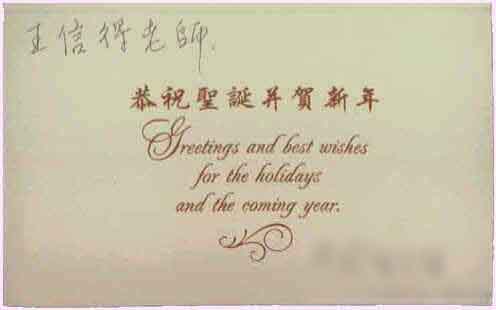 王信得老師.
恭祝聖誕并賀新年
Greetings and best wishes
for the holidays
and the coming year.